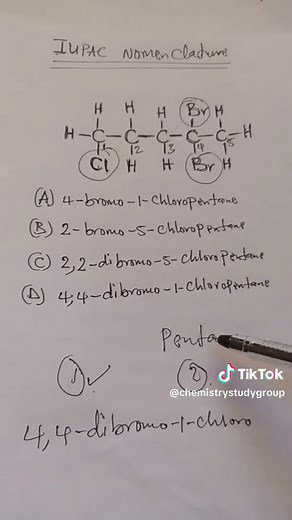 IUPAC Nomenclature
H H H Br H
H-C-C-C-C-C=H
1 2 3 4 5
Cl H H Br H
(A) 4-bromo-1-chloropentane
(B) 2-bromo-5-chloropentane
(C) 2,2-dibromo-5-chloropentane
(D) 4,4-dibromo-1-chloropentane
Penta
1 ✓ 2
TikTok
@chemistrystudygroup
4,4-dibromo-1-chloro